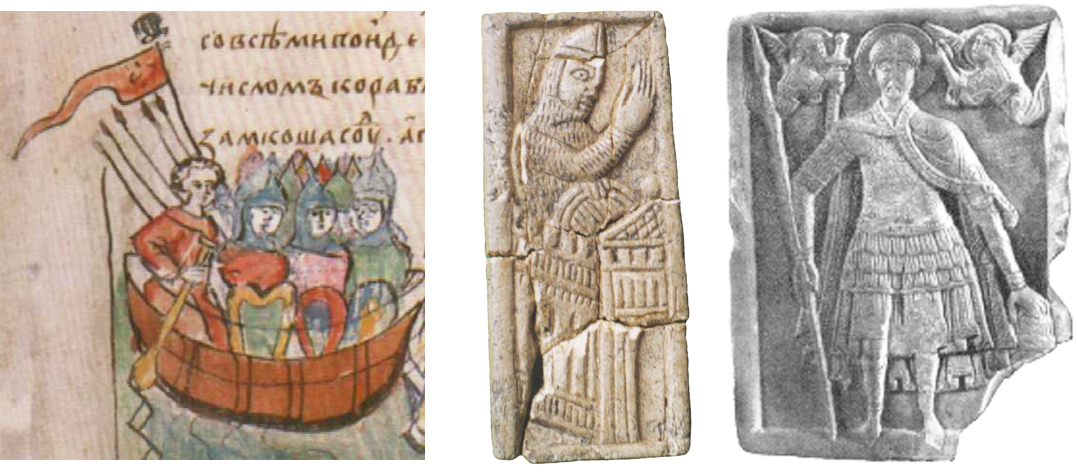 совсѣми поиде
числомъ корабл
замкоша соуⷣ . а г